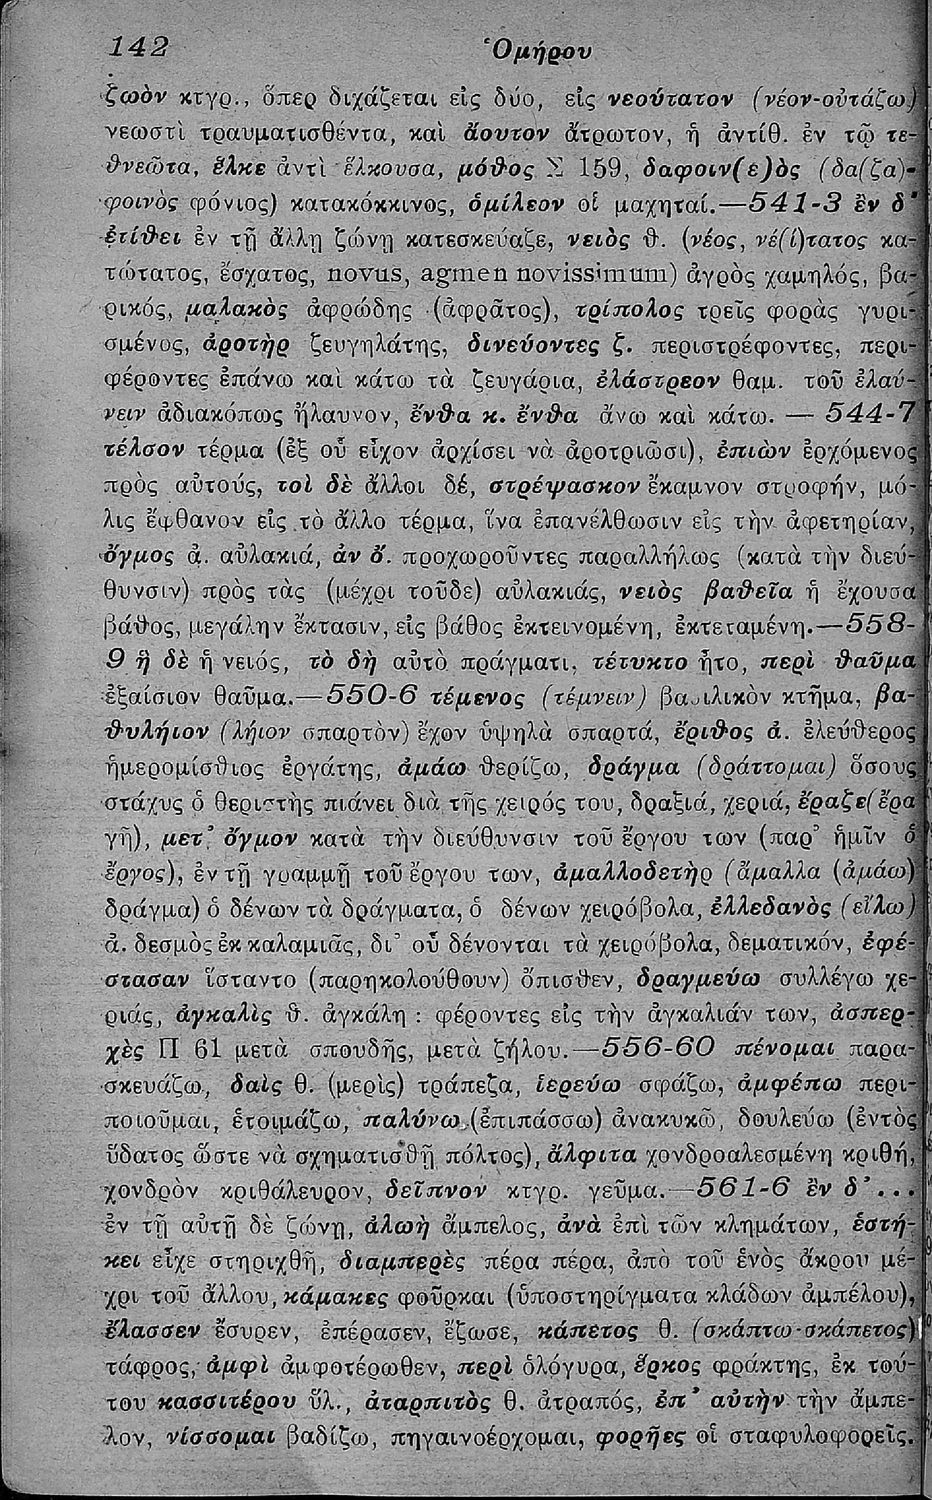 142 Ὁμήρου
ζωὸν κτγρ., ὅπερ διχάζεται εἰς δύο, εἰς νεούτατον (νέον-οὐτάζω)
νεωστὶ τραυματισθέντα, καὶ ἄουτον ἄτρωτον, ἢ ἀντίθ. ἐν τῷ τε-
θνεῶτα, ἕλκε ἀντὶ ἕλκουσα, μόθος Σ 159, δαφοιν(ε)ὸς (δα(ζα)-
φοινὸς φόνιος) κατακόκκινος, ὁμίλεον οἱ μαχηταί.—541-3 ἐν δ’
ἐτίθει ἐν τῇ ἄλλῃ ζώνῃ κατεσκεύαζε, νειὸς ϑ. (νέος, νέ(ί)τατος κα-
τώτατος, ἔσχατος, novus, agmen novissimum) ἀγρὸς χαμηλός, βα-
ρικός, μαλακὸς ἀφρώδης (ἀφρᾶτος), τρίπολος τρεῖς φορὰς γυρι-
σμένος, ἀροτὴρ ζευγηλάτης, δινεύοντες ζ. περιστρέφοντες, περι-
φέροντες ἐπάνω καὶ κάτω τὰ ζευγάρια, ἐλάστρεον θαμ. τοῦ ἐλαύ-
νειν ἀδιακόπως ἤλαυνον, ἔνθα κ. ἔνθα ἄνω καὶ κάτω. — 544-7
τέλσον τέρμα (ἐξ οὗ εἶχον ἀρχίσει νὰ ἀροτριῶσι), ἐπιὼν ἐρχόμενος
πρὸς αὐτούς, τοὶ δὲ ἄλλοι δέ, στρέψασκον ἔκαμνον στροφήν, μό-
λις ἔφθανον εἰς τὸ ἄλλο τέρμα, ἵνα ἐπανέλθωσιν εἰς τὴν ἀφετηρίαν,
ὄγμος ἀ. αὐλακιά, ἀν ὄ. προχωροῦντες παραλλήλως (κατὰ τὴν διεύ-
θυνσιν) πρὸς τὰς (μέχρι τοῦδε) αὐλακιάς, νειὸς βαθεῖα ἡ ἔχουσα
βάθος, μεγάλην ἔκτασιν, εἰς βάθος ἐκτεινομένη, ἐκτεταμένη.—558-
9 ἡ δὲ ἡ νειός, τὸ δὴ αὐτὸ πράγματι, τέτυκτο ἦτο, περὶ θαῦμα
ἐξαίσιον θαῦμα.—550-6 τέμενος (τέμνειν) βασιλικὸν κτῆμα, βα-
θυλήιον (λήιον σπαρτὸν) ἔχον ὑψηλὰ σπαρτά, ἔριθος ἀ. ἐλεύθερος
ἡμερομίσθιος ἐργάτης, ἀμάω θερίζω, δράγμα (δράττομαι) ὅσους
στάχυς ὁ θεριστὴς πιάνει διὰ τῆς χειρός του, δραξιά, χεριά, ἔραζε (ἔρα
γῆ), μετ’ ὄγμον κατὰ τὴν διεύθυνσιν τοῦ ἔργου των (παρ’ ἡμῖν ὁ
ἔργος), ἐν τῇ γραμμῇ τοῦ ἔργου των, ἀμαλλοδετὴρ (ἄμαλλα (ἀμάω)
δράγμα) ὁ δένων τὰ δράγματα, ὁ δένων χειρόβολα, ἐλλεδανὸς (εἴλω)
ἀ. δεσμὸς ἐκ καλαμιᾶς, δι’ οὗ δένονται τὰ χειρόβολα, δεματικόν, ἐφέ-
στασαν ἵσταντο (παρηκολούθουν) ὄπισθεν, δραγμεύω συλλέγω χε-
ριάς, ἀγκαλὶς ϑ. ἀγκάλη : φέροντες εἰς τὴν ἀγκαλιάν των, ἀσπερ-
χὲς Π 61 μετὰ σπουδῆς, μετὰ ζήλου.—556-60 πένομαι παρα-
σκευάζω, δαὶς θ. (μερὶς) τράπεζα, ἱερεύω σφάζω, ἀμφέπω περι-
ποιοῦμαι, ἑτοιμάζω, παλύνω (ἐπιπάσσω) ἀνακυκῶ, δουλεύω (ἐντὸς
ὕδατος ὥστε νὰ σχηματισθῇ πόλτος), ἄλφιτα χονδροαλεσμένη κριθή,
χονδρὸν κριθάλευρον, δεῖπνον κτγρ. γεῦμα.—561-6 ἐν δ’...
ἐν τῇ αὐτῇ δὲ ζώνῃ, ἀλωὴ ἄμπελος, ἀνὰ ἐπὶ τῶν κλημάτων, ἑστή-
κει εἶχε στηριχθῆ, διαμπερὲς πέρα πέρα, ἀπὸ τοῦ ἑνὸς ἄκρου μέ-
χρι τοῦ ἄλλου, κάμακες φοῦρκαι (ὑποστηρίγματα κλάδων ἀμπέλου),
ἔλασσεν ἔσυρεν, ἐπέρασεν, ἔζωσε, κάπετος θ. (σκάπτω-σκάπετος)
τάφρος, ἀμφὶ ἀμφοτέρωθεν, περὶ ὁλόγυρα, ἕρκος φράκτης, ἐκ τού-
του κασσιτέρου ὕλ., ἀταρπιτὸς θ. ἀτραπός, ἐπ’ αὐτὴν τὴν ἄμπε-
λον, νίσσομαι βαδίζω, πηγαινοέρχομαι, φορῆες οἱ σταφυλοφορεῖς.